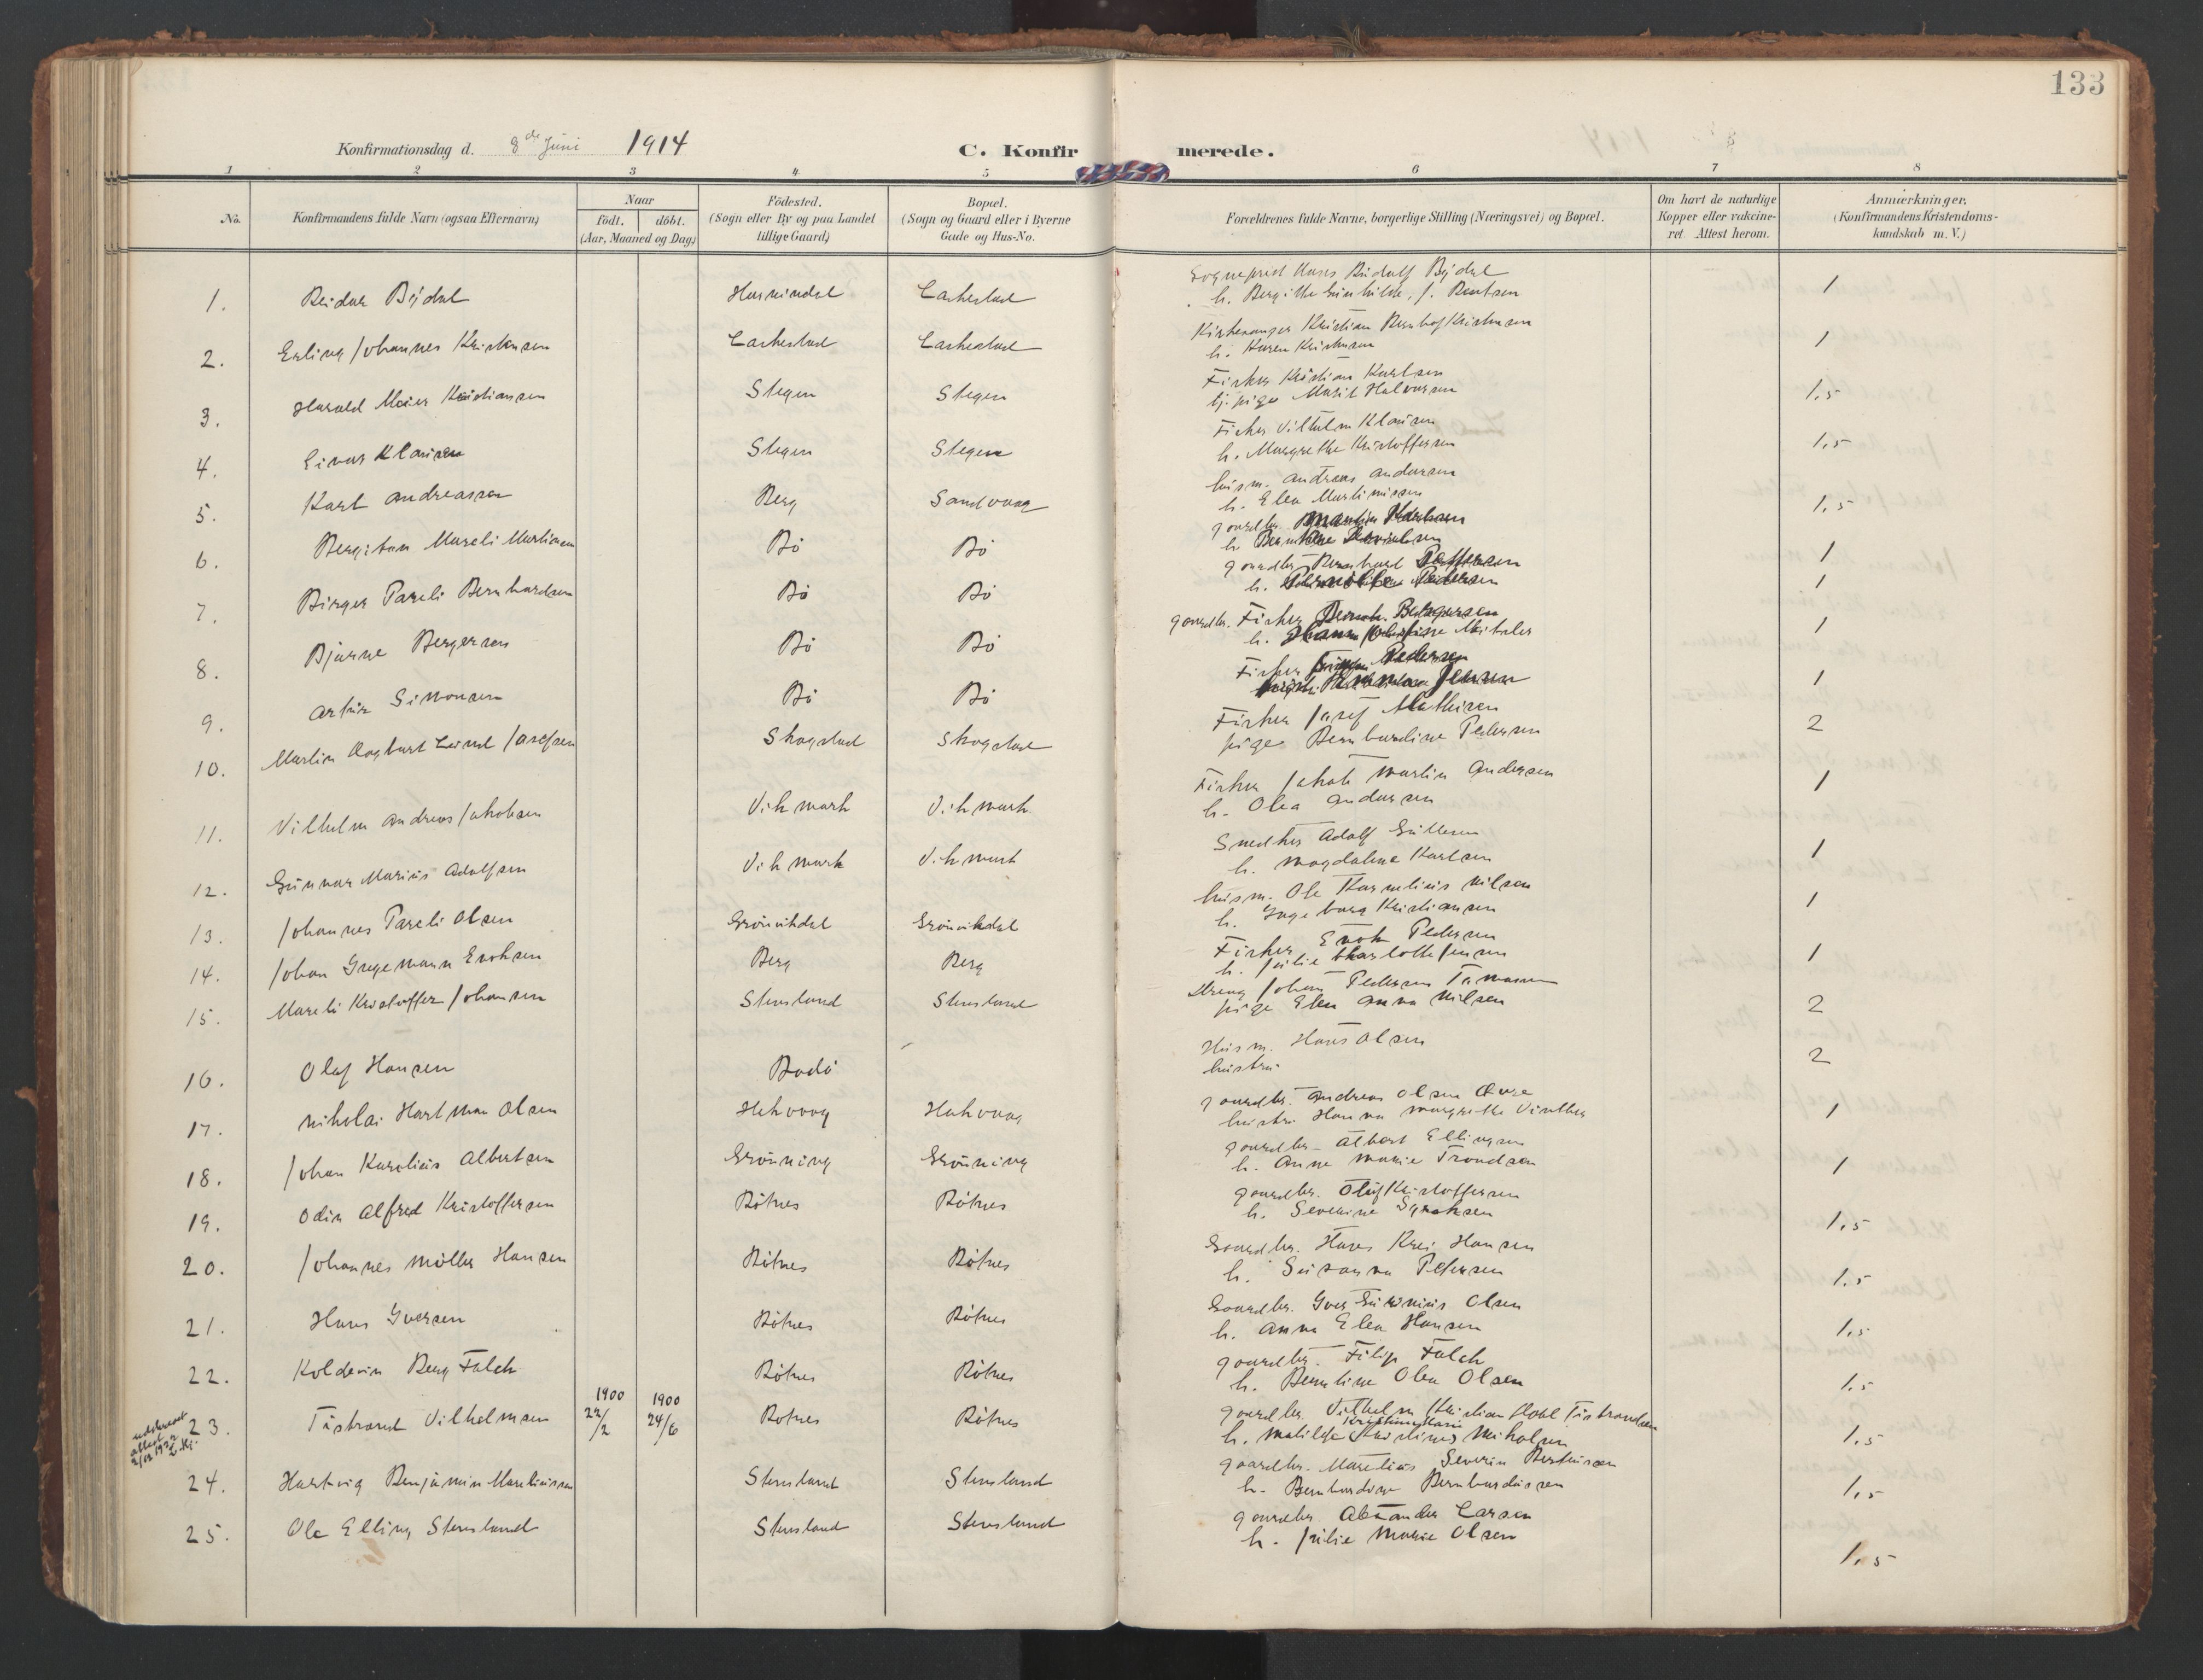 133
Konfirmationsdag d. 8de Juni 1914
C. Konfirmerede.
1 2 3 4 5 6 7 8
No. Konfirmandens fulde Navn (ogsaa Efternavn) Naar født. døbt. (Aar, Maaned og Dag) Fødested. (Sogn eller By og paa Landet tillige Gaard) Bopæl. (Sogn og Gaard eller i Byerne Gade og Hus-No. Forældrenes fulde Navne, borgerlige Stilling (Næringsvei) og Bopæl. Om havt de naturlige Kopper eller vaccineret. Attest herom. Anmærkninger. (Konfirmandens Kristendomskundskab m. V.)
1. Reidar Bjdal Hornindal Laskestad Sogneprest Hans Rudolf Bjdal 1
h. Bergitte Gunhilde, f. Bentsen
2. Erling Johannes Kristensen Laskestad Laskestad Kirkesanger Kristian Kristensen 1
h. Karen Kristensen
3. Harald Meier Kristiansen Stegen Stegen Fisker Kristian Karlsen 1,5
pige Marit Halvorsen
4. Einar Klausen Stegen Stegen Fisker Vilhelm Klausen 1,5
h. Margrethe Kristoffersen
5. Karl Andreassen Berg Sandvaag husm. Andreas Andersen 1,5
h. Elea Martinussen
6. Bergiton Mareli Martinsen Bø Bø gaardbr. Martin 1
h.
7. Birger Pareli Bernhardsen Bø Bø gaardbr. Bernhard Pettersen 1
h. Pernille Pedersen
8. Bjarne Bergersen Bø Bø gaardbr. Fisker Bergersen 1
h.
9. Artur Simonsen Bø Bø Fisker Pedersen 1
10. Martin Dagbart Lund Josefsen Skogstad Skogstad Fisker Josef Mathisen 2
pige Bernhardine Pedersen
11. Vilhelm Andreas Jakobsen Vikmark Vikmark Fisker Jakob Martin Andersen 1
h. Olea Andersen
12. Gunnar Marius Adolfsen Vikmark Vikmark Snedker Adolf 1
h. Magdalena Karlsen
13. Johannes Pareli Olsen Grønvikdal Grønvikdal husm. Ole Kornelius Nilsen 1
h. Ingeborg Kristiansen
14. Johan Ingemann Enoksen Berg Berg Fisker Enok Pedersen 1
h. Julie Charlotte Jensen
15. Mareli Kristoffer Johansen Stensland Stensland Dreng Johan Pedersen 2
pige Elen Anna Nilsen
16. Olaf Hansen Bodø Husm. Hans Olsen 2
hustru
17. Nikolai Hartman Olsen Hakvaag Hakvaag gaardbr. Andreas Olsen 1
hustru Hanna Margrethe Vinther
18. Johan Karelius Albertsen Grønning Grønning gaardbr. Albert Ellingsen 1
h. Anne Marie Trondsen
19. Odin Alfred Kristoffersen Røtnes Røtnes gaardbr. Oluf Kristoffersen 1,5
h. Severine
20. Johannes Møller Hansen Røtnes Røtnes Gaardbr. Hans Krei Hansen 1,5
h. Susanna Petersen
21. Hans Iversen Røtnes Røtnes Gaardbr. Iver Olsen 1,5
h. Anna Elea Hansen
22. Koldevin Berg Falch Røtnes Røtnes gaardbr. Filip Falch 1,5
h. Berntine Olea Olsen
udskrevet attest 23. Tistrand Vilhelmsen 1900 22/2 1900 24/6 Røtnes Røtnes gaardbr. Vilhelm Kristian Tistrandsen 1,5
h. Mathilde
24. Hartvig Benjamin Mareliussen Stensland Stensland gaardbr. Marelius Severin Berthinsen 1,5
h. Bernhardine Bernhardussen
25. Ole Elling Stensland Stensland Stensland gaardbr. Alexander Larsen 1,5
h. Julie Marie Olsen